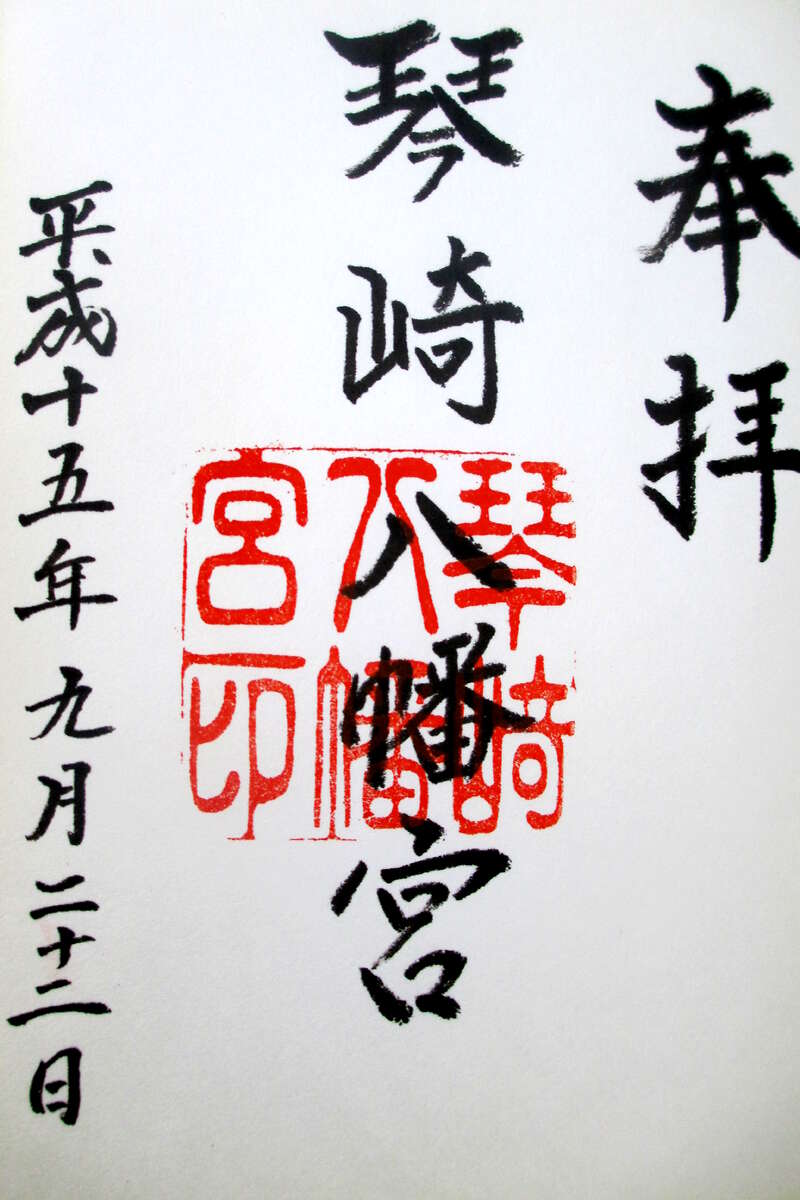 奉拝
琴崎八幡宮
琴崎
八幡
宮印
平成十五年九月二十二日